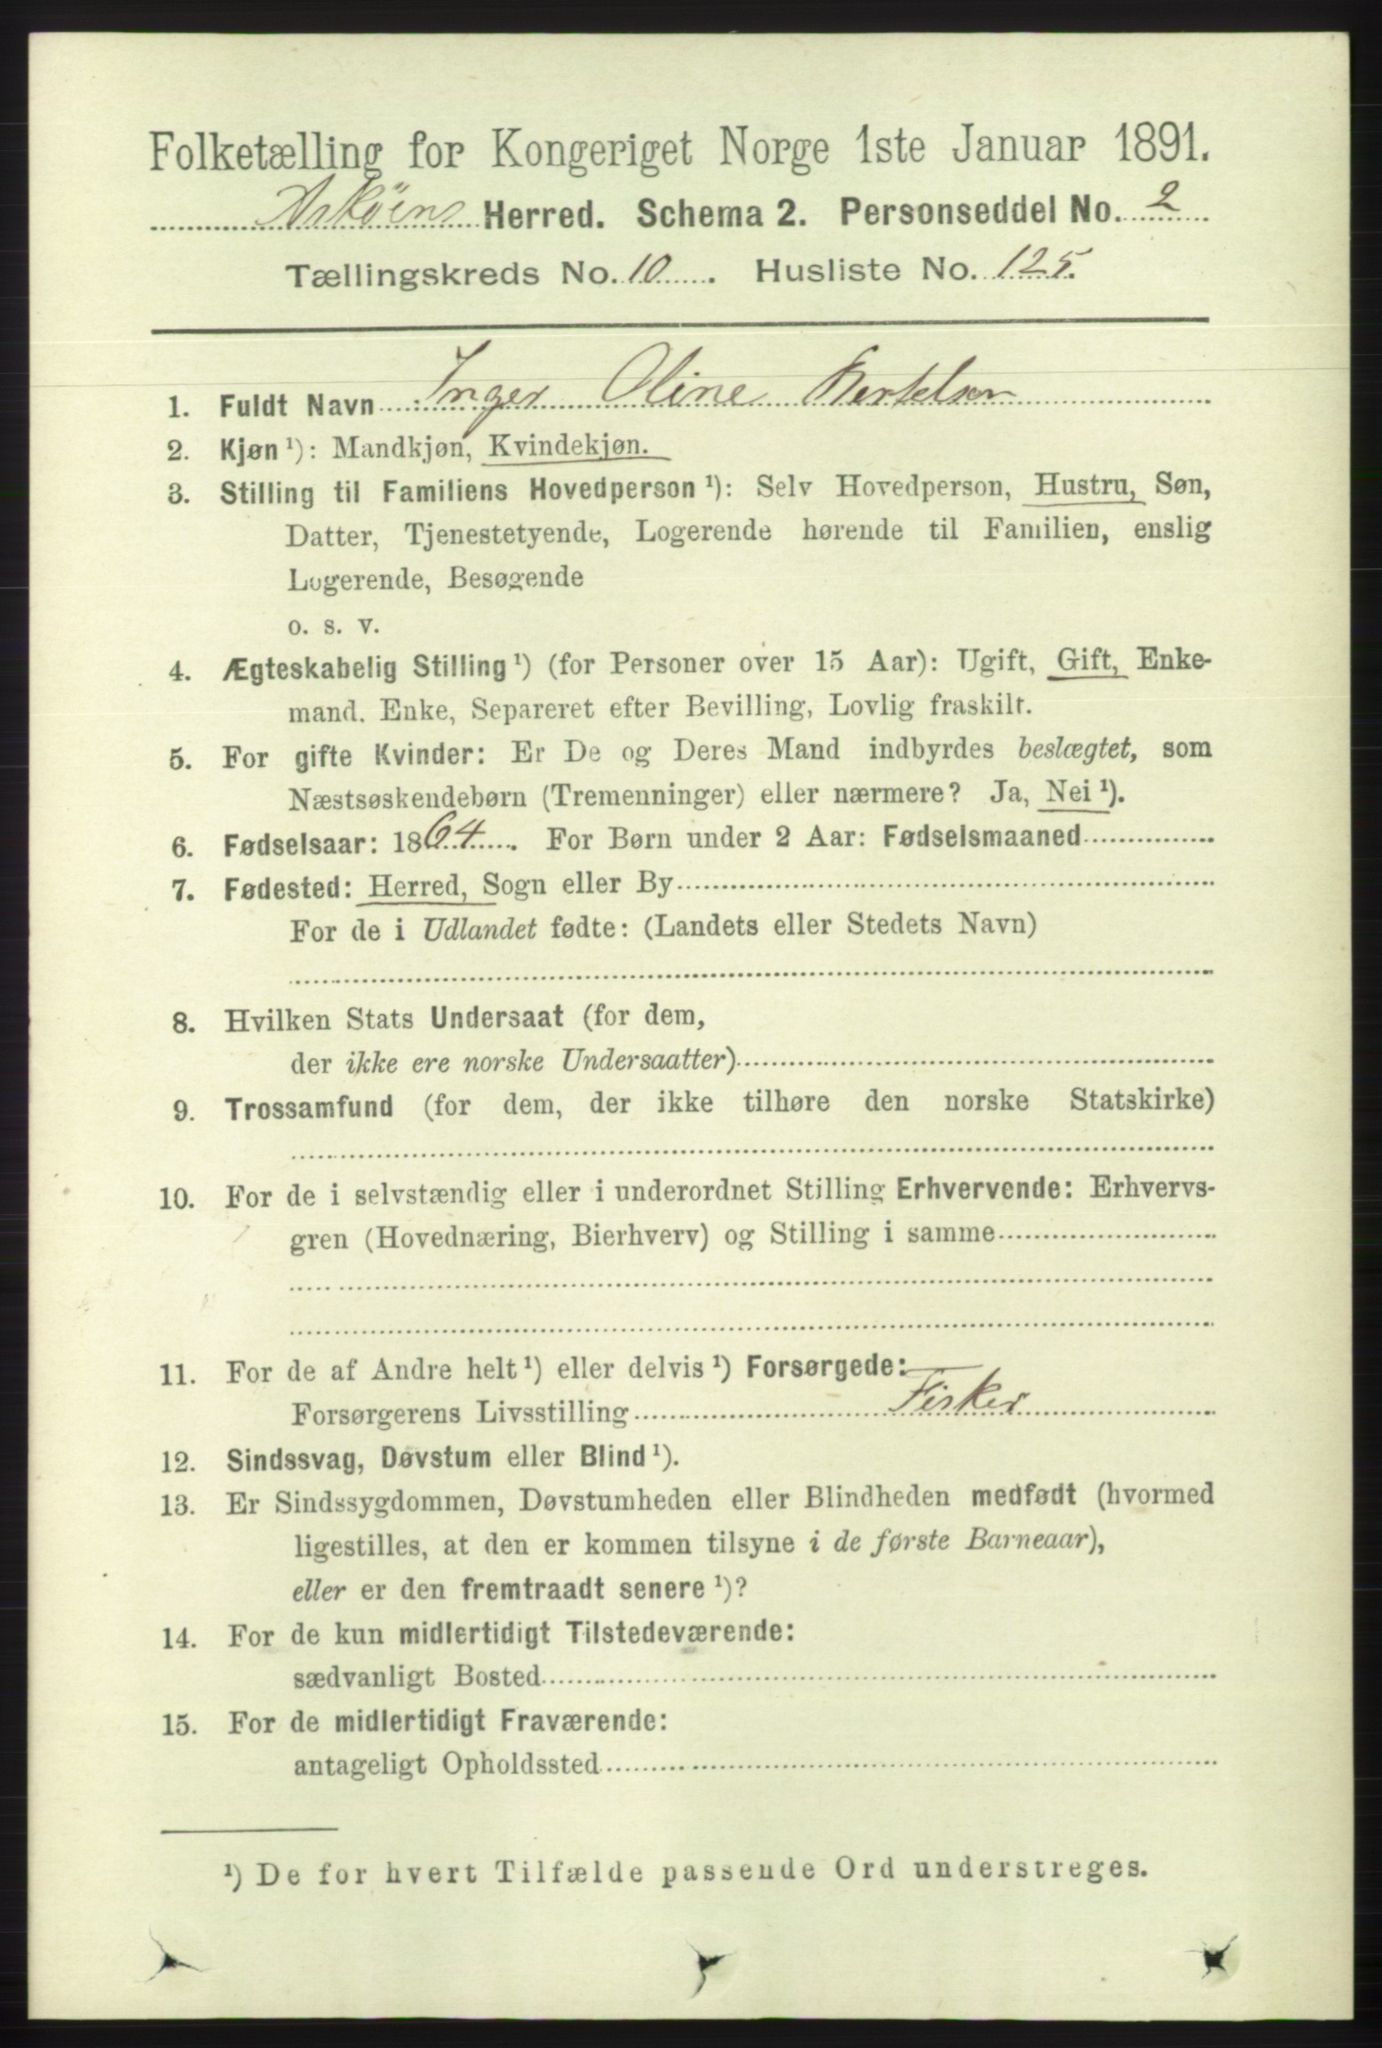 Folketælling for Kongeriget Norge 1ste Januar 1891.
Askøens Herred. Schema 2. Personseddel No. 2
Tællingskreds No. 10. Husliste No. 125.
1. Fuldt Navn Inger Oline Bertelsen
2. Kjøn ¹): Mandkjøn, Kvindekjøn.
3. Stilling til Familiens Hovedperson ¹): Selv Hovedperson, Hustru, Søn,
Datter, Tjenestetyende, Logerende hørende til Familien, enslig
Logerende, Besøgende
o. s. v.
4. Ægteskabelig Stilling ¹) (for Personer over 15 Aar): Ugift, Gift, Enke-
mand, Enke, Separeret efter Bevilling, Lovlig fraskilt.
5. For gifte Kvinder: Er De og Deres Mand indbyrdes beslægtet, som
Næstsøskendebørn (Tremenninger) eller nærmere? Ja, Nei ¹).
6. Fødselsaar: 1864. For Børn under 2 Aar: Fødselsmaaned
7. Fødested: Herred, Sogn eller By
For de i Udlandet fødte: (Landets eller Stedets Navn)
8. Hvilken Stats Undersaat (for dem,
der ikke ere norske Undersaatter)
9. Trossamfund (for dem, der ikke tilhøre den norske Statskirke)
10. For de i selvstændig eller i underordnet Stilling Erhvervende: Erhvervs-
gren (Hovednæring, Bierhverv) og Stilling i samme
11. For de af Andre helt ¹) eller delvis ¹) Forsørgede:
Forsørgerens Livsstilling Fisker
12. Sindssvag, Døvstum eller Blind ¹).
13. Er Sindssygdommen, Døvstumheden eller Blindheden medfødt (hvormed
ligestilles, at den er kommen tilsyne i de første Barneaar),
eller er den fremtraadt senere ¹)?
14. For de kun midlertidigt Tilstedeværende:
sædvanligt Bosted
15. For de midlertidigt Fraværende:
antageligt Opholdssted
¹) De for hvert Tilfælde passende Ord understreges.